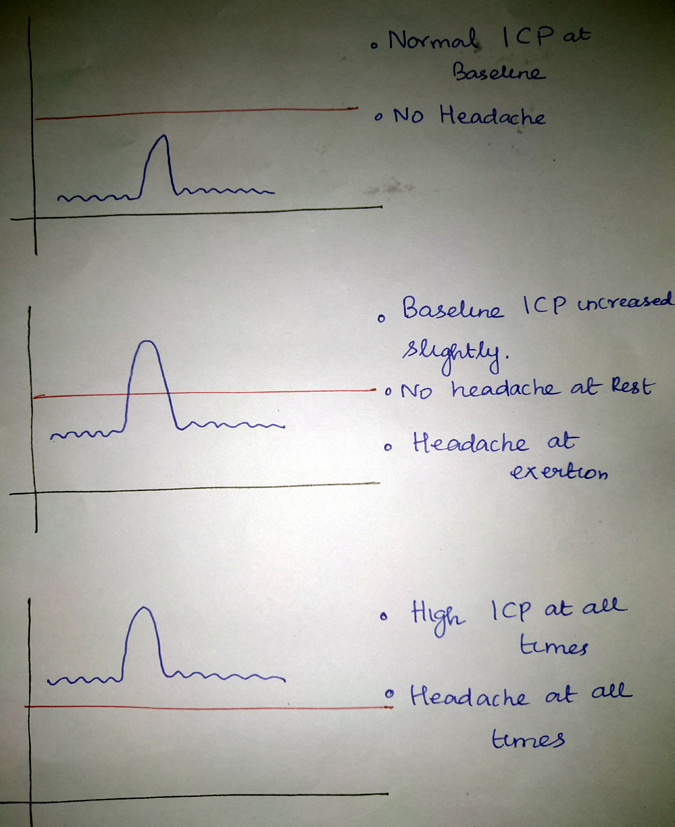 • Normal ICP at
Baseline
• No Headache
• Baseline ICP increased
slightly.
• No headache at Rest
• Headache at
exertion
• High ICP at all
times
• Headache at all
times